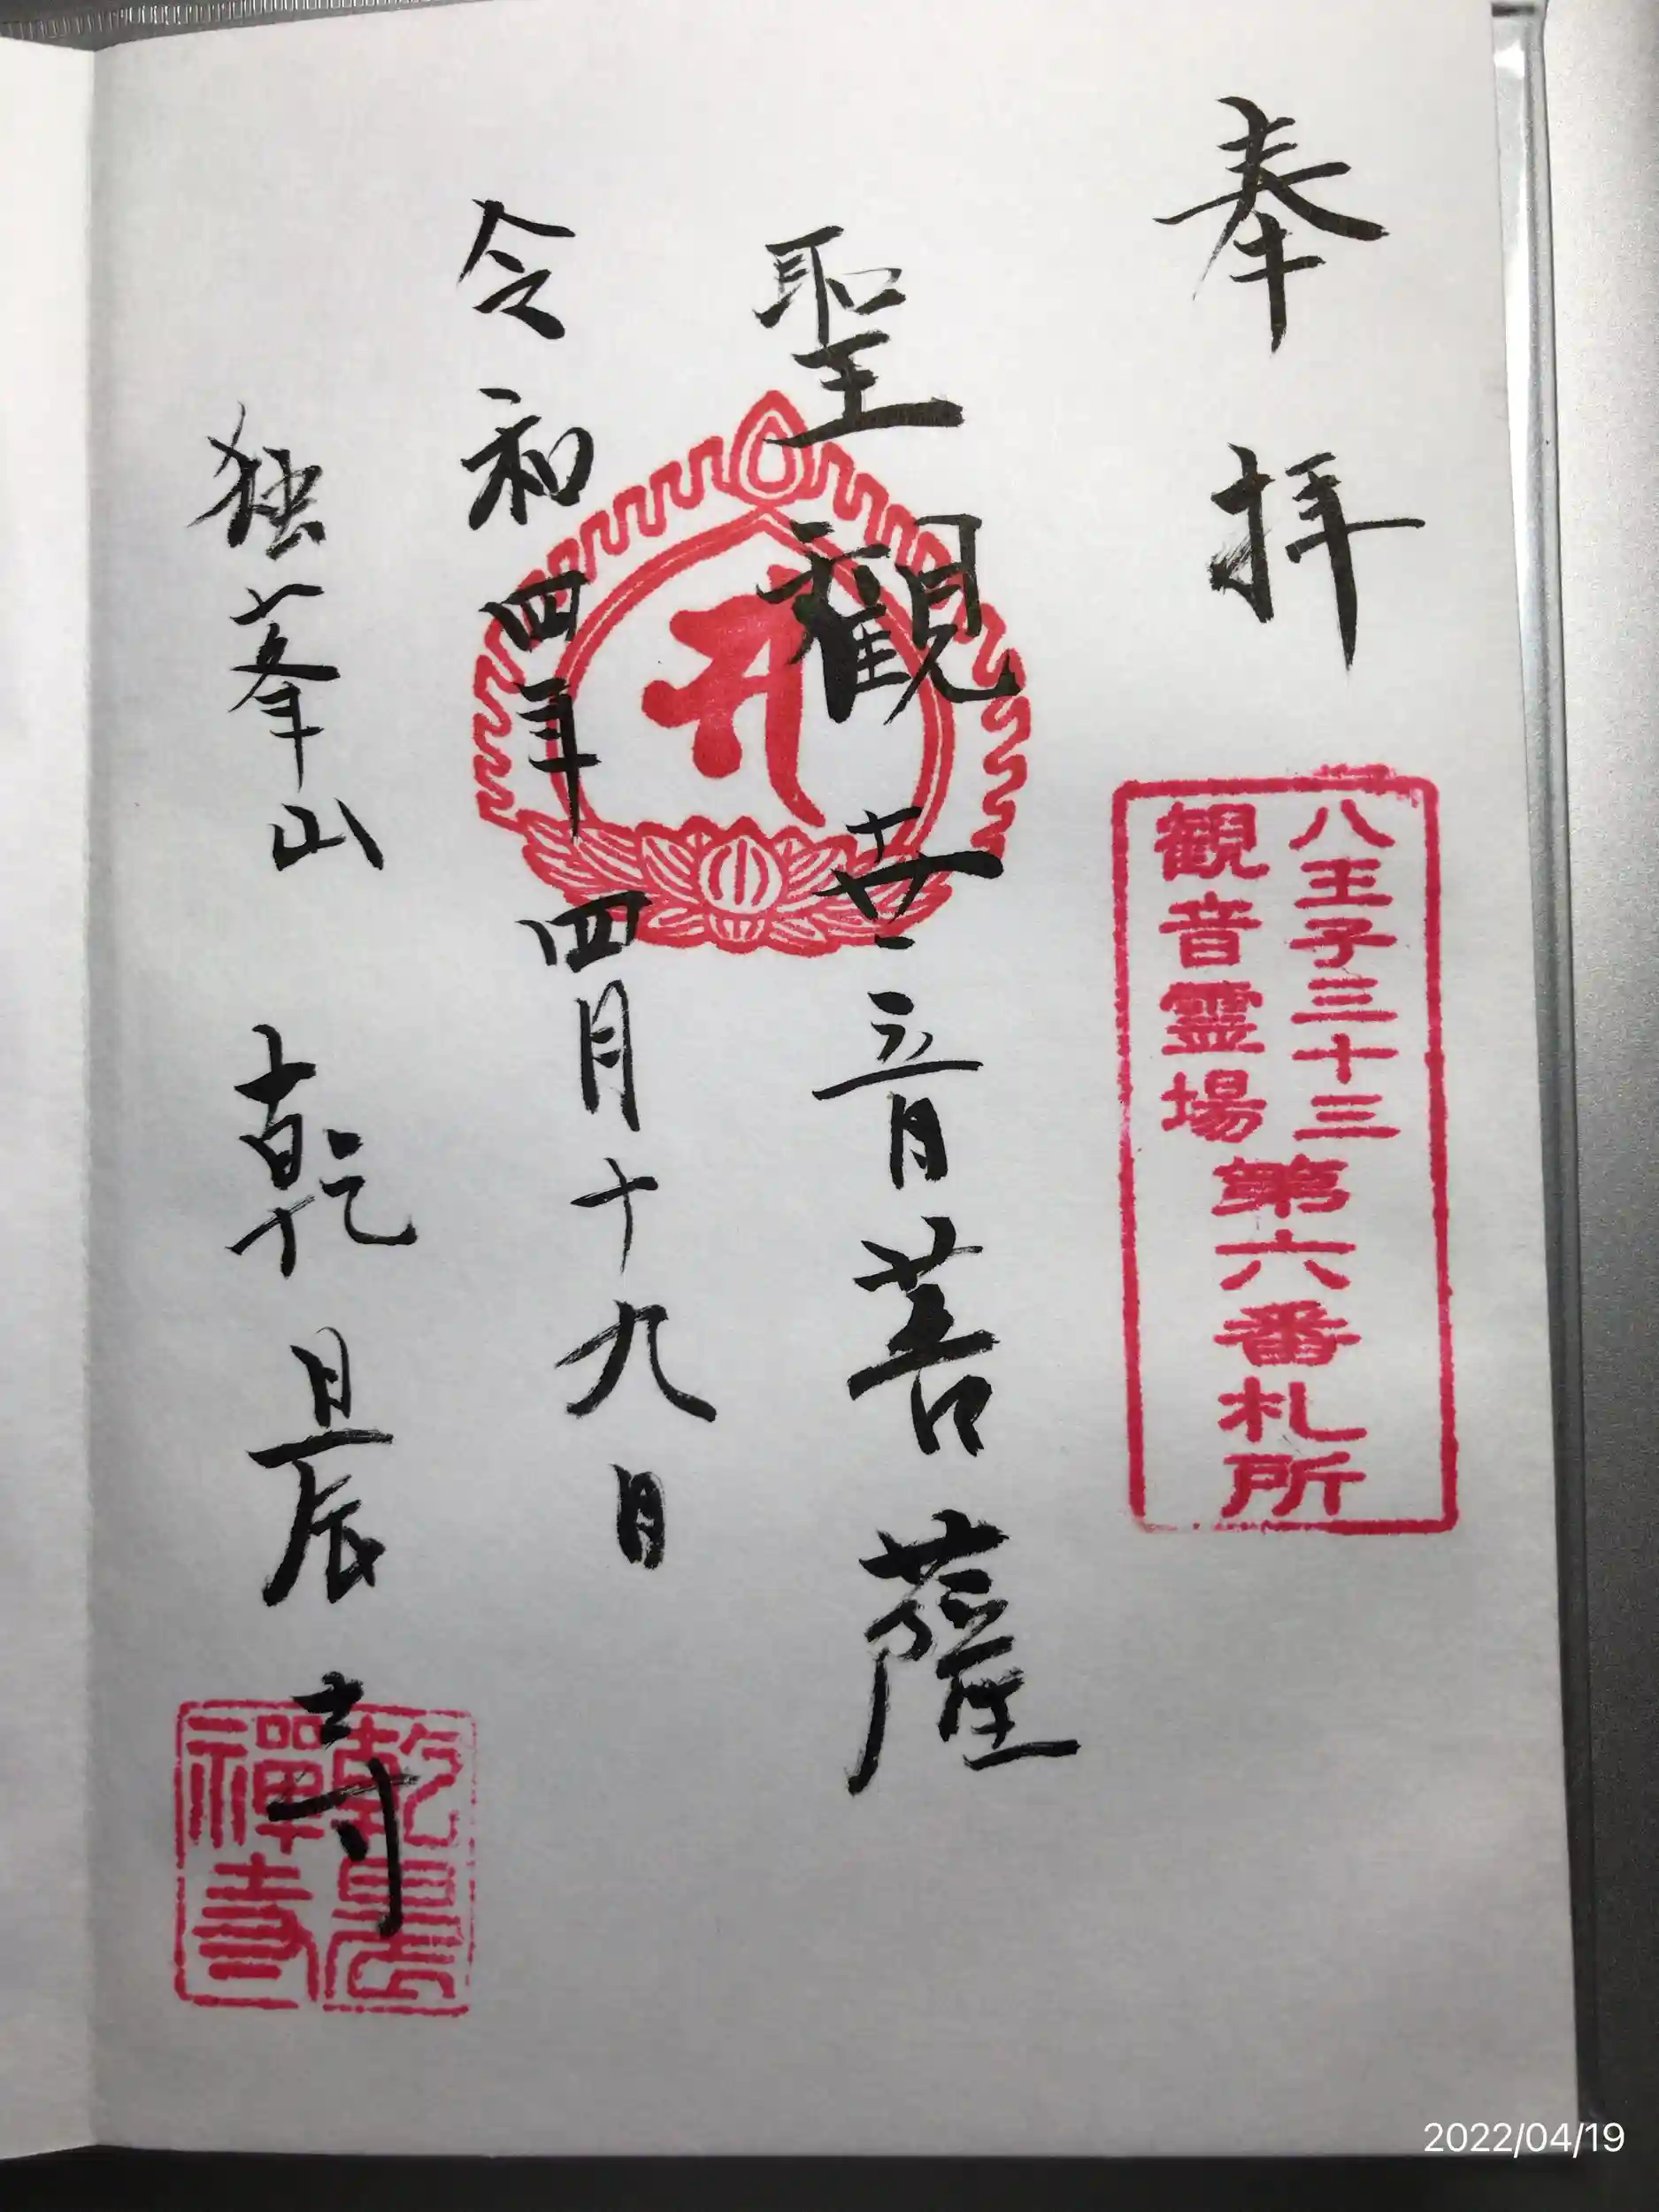 奉拝
八王子三十三
観音霊場
第六番札所
聖観世音菩薩
令和四年四月十九日
独峯山 乾晨寺
乾晨
禪寺
2022/04/19